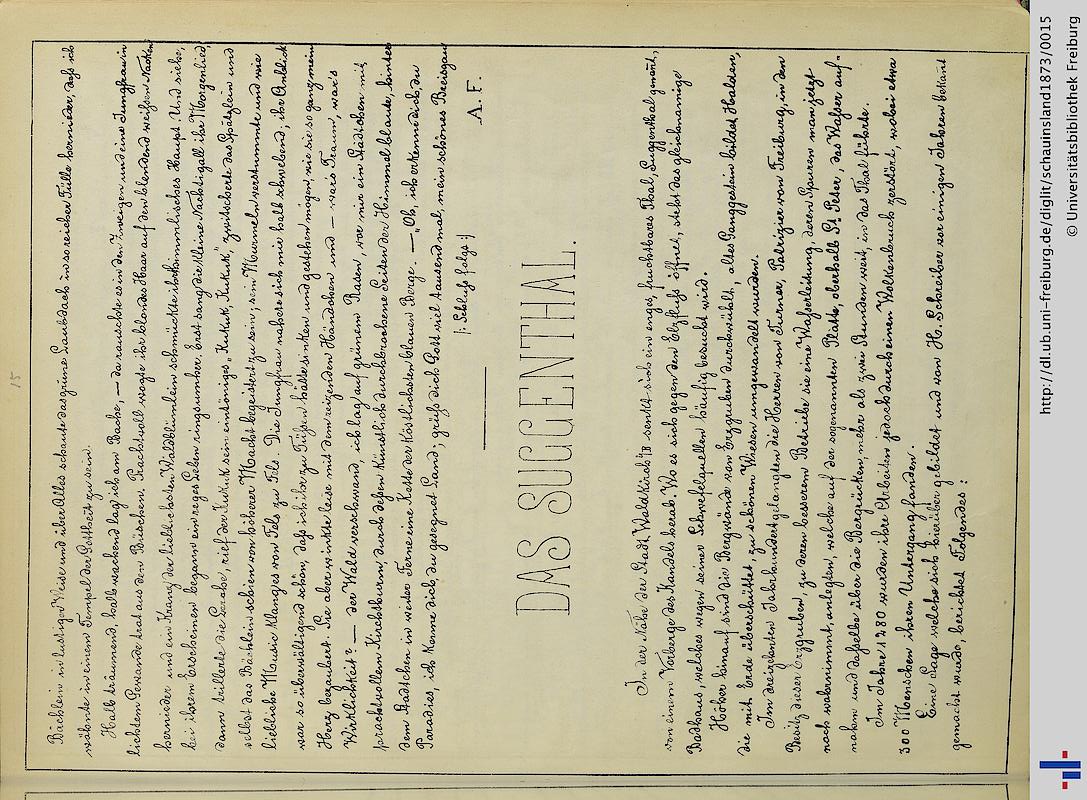 15
Bächlein in lustiger Weise und über Alles schaute das grüne Laubdach in so reicher Fülle hernieder, daß ich
wähnte in einem Tempel der Gottheit zu sein.
Halb träumend, halb wachend lag ich am Bache, — da rauschte es in den Zweigen und eine Jungfrau in
lichtem Gewande trat aus den Büschen. Prachtvoll wogte ihr blondes Haar auf den blendend weißen Nacken
hernieder und ein Kranz der lieblichsten Waldblümlein schmückte ihr himmlisches Haupt. Und siehe,
bei ihrem Erscheinen begann ein reges Leben ringsumher. Erst sang die kleine Nachtigall ihr Morgenlied,
dann trillerte die Lerche, rief der Kukuk sein eintöniges „Kukuk, Kukuk", zwitscherte das Spätzlein und
selbst das Bächlein schien von höherer Macht begeistert zu sein; sein Murmeln verstummte und wie
liebliche Music klang es von Fels zu Fels. Die Jungfrau nahete sich mir halb schwebend; ihr Anblick
war so überwältigend schön, daß ich ihr zu Füßen hätte sinken und gestehen mögen, wie sie so ganz mein
Herz bezaubert. Sie aber winkte leise mit dem reizenden Händchen und — war's Traum, war's
Wirklichkeit? — der Wald verschwand, ich lag auf grünem Rasen, vor mir ein Städtchen mit
prachtvollem Kirchturm, durch deßen künstlich durchbrochene Seiten der Himmel blaute, hinter
dem Städtchen in weiter Ferne eine Kette der köstlichsten blauen Berge. — „Oh, ich erkenne dich, du
Paradies, ich kenne dich, du gesegnet Land, grüß dich Gott viel tausend mal, mein schönes Breisgau
|: Schluß folgt :|
A. F.
DAS SUGGENTHAL.
In der Nähe der Stadt Waldkirch senkt sich ein enges, fruchtbares Thal, Suggenthal genannt,
von einem Vorberge des Kandels herab. Wo es sich gegen den Elzfluß öffnet, steht das gleichnamige
Badhaus, welches wegen seiner Schwefelquellen häufig besucht wird.
Höher hinauf sind die Bergwände von Erzgruben durchwühlt, altes Ganggestein bildet Halden,
die mit Erde überschüttet zu schönen Wiesen umgewandelt wurden.
Im dreizehnten Jahrhundert gelangten die Herren von Turner, Patrizier von Freiburg, in den
Besitz dieser Erzgruben, zu deren besserem Betriebe sie eine Waßerleitung, deren Spuren man jetzt
noch wahrnimmt, anlegten, welche auf der sogenannten Platte, oberhalb St. Peter, das Waßer auf-
nahm und daßelbe über die Bergrücken, mehr als zwei Stunden weit, in das Thal führte.
Im Jahre 1280 wurden ihre Arbeiten jedoch durch einen Wolkenbruch zerstört, wobei etwa
300 Menschen ihren Untergang fanden.
Eine Sage welche sich hierüber gebildet und von H. Schreiber vor einigen Jahren bekannt
gemacht wurde, berichtet Folgendes:
http://dl.ub.uni-freiburg.de/diglit/schauinsland1873/0015
© Universitätsbibliothek Freiburg